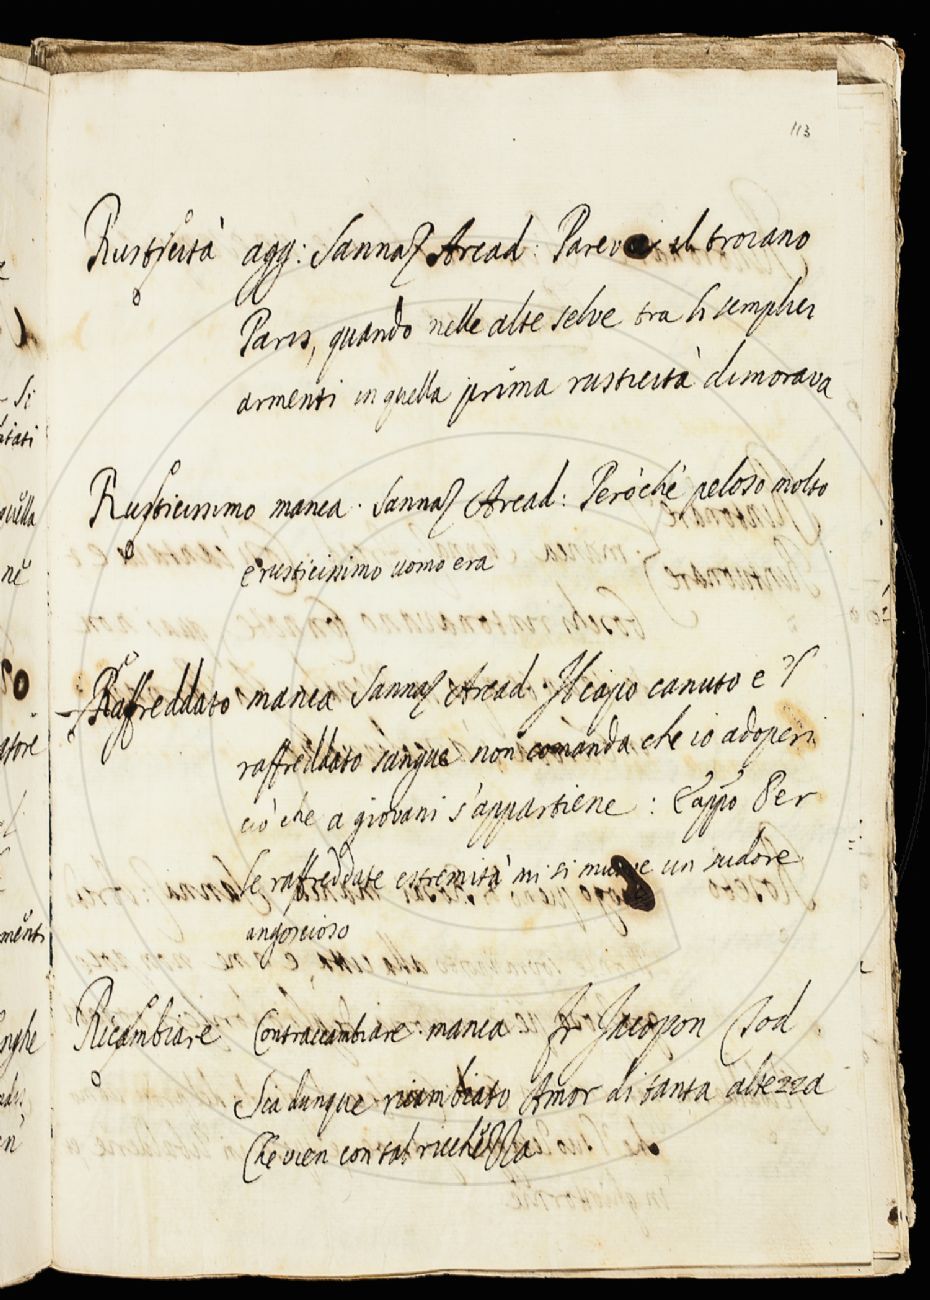 113
Rusticità agg: Sannaz Arcad: Pareva il troiano
Paris, quando nelle alte selve tra li semplici
armenti in quella prima rusticità dimorava
Rusticissimo manca. Sannaz Arcad: Però che peloso molto
e rusticissimo uomo era
Raffreddato manca Sannaz Arcad Il capo canuto e 'l
raffreddato sangue non comanda che io adoperi
ciò che a giovani s'appartiene: E appo Per
le raffreddate estremità mi si muove un sudore
angoscioso
Ricambiare Contraccambiare. manca Fr Jacopon Tod
Sia dunque ricambiato Amor di tanta altezza
Che vien con tal ricchezza